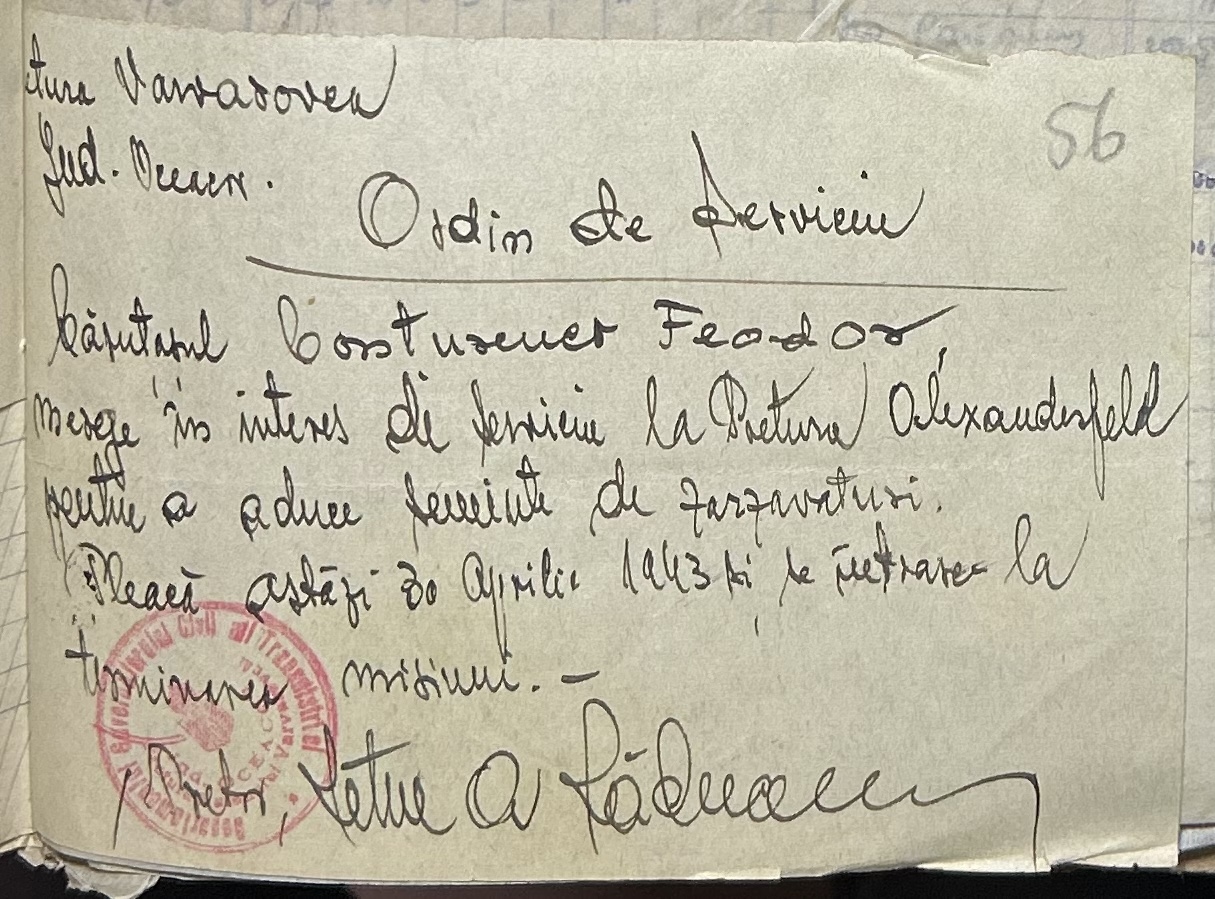 etura Varvarovca
Jud. Oceacov.
56
Ordin de Serviciu
Căruțașul Costurencer Feodor,
merge în interes de serviciu la Pretura Alexanderfeld
pentru a aduce seminte de zarzavaturi.
Pleacă astăzi 30 Aprilie 1943 și se retrage la
terminarea misiunii. —
Guvernatorul Civil al Transnistriei
Pretor,